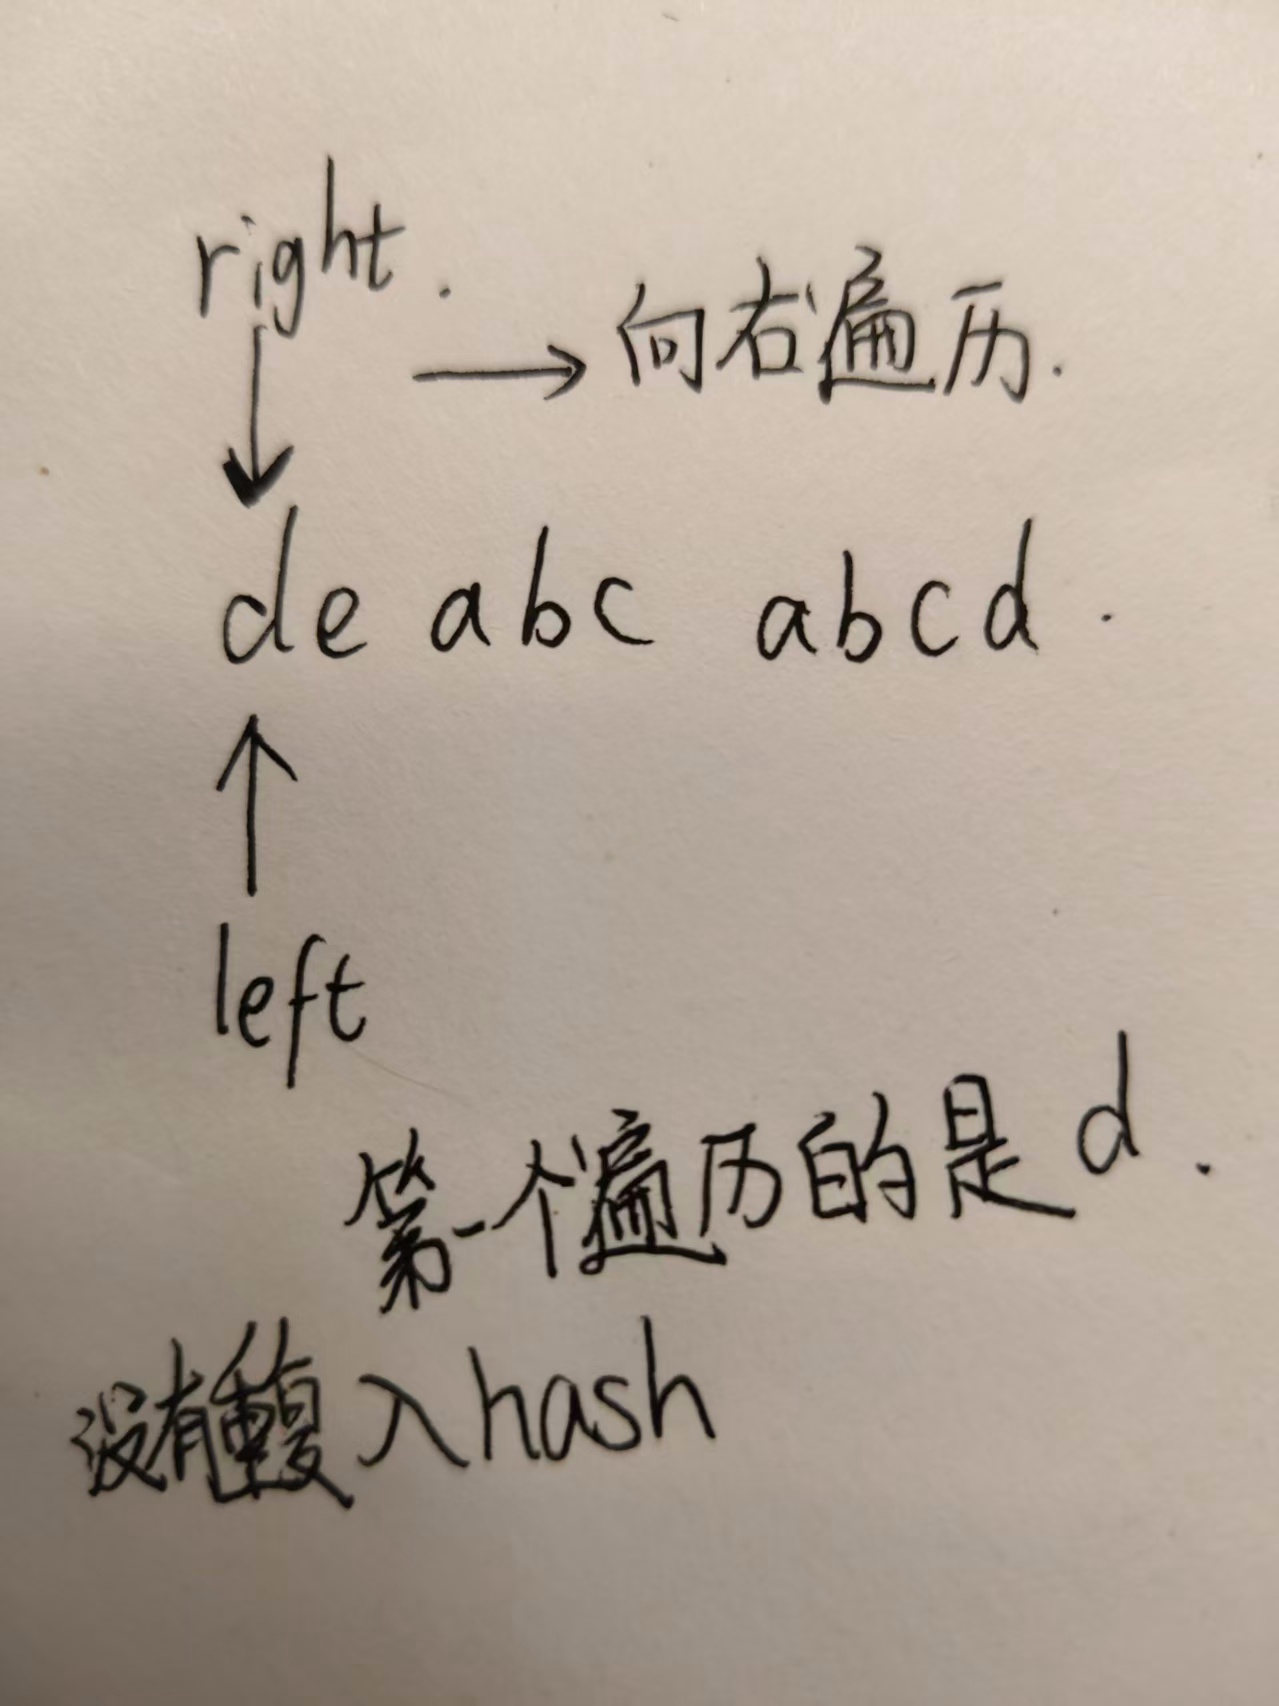 right.
→ 向右遍历.
de abc abcd.
left
第一个遍历的是d.
没有重复入hash